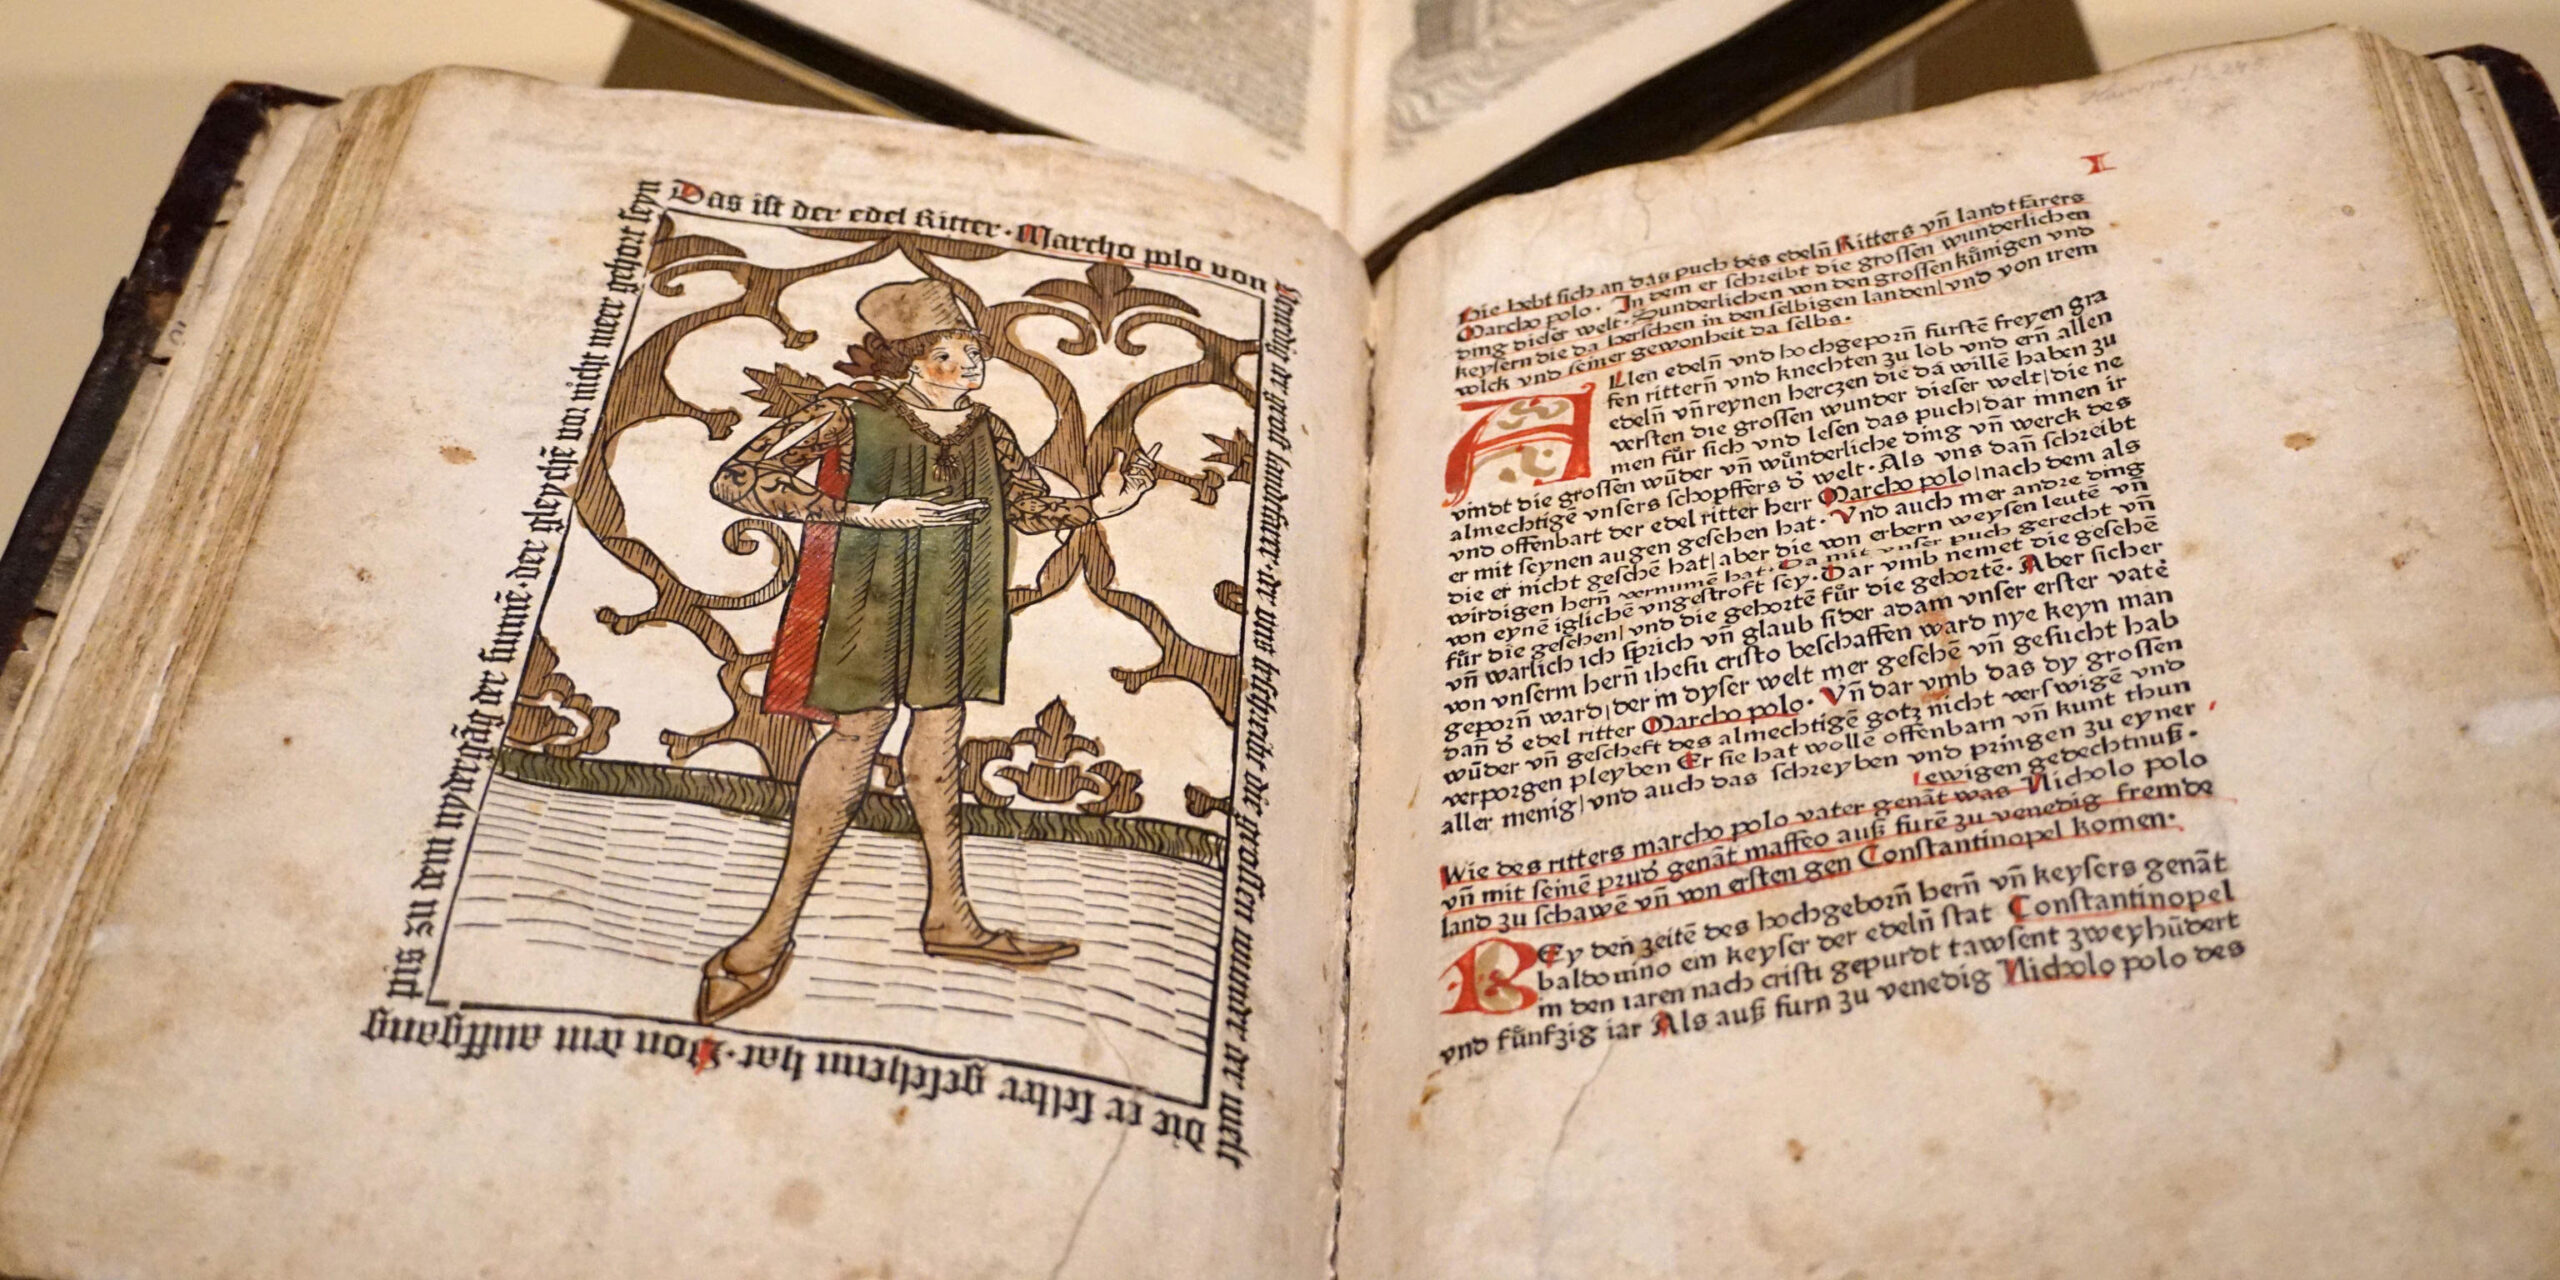 Das ist der edel Ritter · Marcho polo von
Venedig der groß landtfarer · der uns beschreibt die grossen wunder der welt
die er selber gesehenn hat · Von dem auffgang
pis zu dem nydergãg der sunnẽ · der gleychẽ vor nicht meer gehort seyn
I
Hie hebt sich an das puch des edelñ Ritters vñ landtfarers
Marcho polo · In dem er schreibt die grossen wunderlichen
ding dieser welt · Sunderlichen von den grossen kůnigen vnd
keysern die da herschen in den selbigen landen / vnd von irem
volck vnd seiner gewonheit da selbs ·
ALlen edelñ vnd hochgeporñ furstẽ freyen gra
fen ritterñ vnd knechten zu lob vnd erñ allen
edelñ vñ reynen herczen die da willẽ haben zu
versten die grossen wunder dieser welt / die ne
men fůr sich vnd lesen das puch / dar innen ir
vindt die grossen wũder vñ wůnderliche ding vñ werck des
almechtigẽ vnsers schopffers d' welt · Als vns dañ schreibt
vnd offenbart der edel ritter herr Marcho polo / nach dem als
er mit seynen augen gesehen hat · Vnd auch mer andre ding
die er nicht gesehẽ hat / aber die von erbern weysen leutẽ vñ
wirdigen herñ vernumẽ hat · Da mit vnser puch gerecht vñ
von eynẽ iglichẽ vngestroft sey · Dar vmb nemet die gesehẽ
fůr die gesehen / vnd die gehortẽ fůr die gehortẽ · Aber sicher
vñ warlich ich sprich vñ glaub sider adam vnser erster vate'
von vnserm herñ ihesu cristo beschaffen ward nye keyn man
geporñ ward / der in dyser welt mer gesehẽ vñ gesucht hab
dañ d' edel ritter Marcho polo · Vñ dar vmb das dy grossen
wũder vñ gescheft des almechtigẽ gotz nicht verswigẽ vnd
verporgen pleyben Er sie hat wollẽ offenbarn vñ kunt thun
aller menig / vnd auch das schreyben vnd pringen zu eyner
ewigen gedechtnuß ·
Wie des ritters marcho polo vater genãt was Nicholo polo
vñ mit seinẽ prud' genãt maffeo auß furẽ zu venedig fremde
land zu schawẽ vñ von ersten gen Constantinopel komen ·
BEy deñ zeitẽ des hochgeborñ herñ vñ keysers genãt
baldouino ein keyser der edelñ stat Constantinopel
in den iaren nach cristi gepurdt tawsent zweyhũdert
vnd fůnfzig iar Als auß furn zu venedig Nicholo polo des